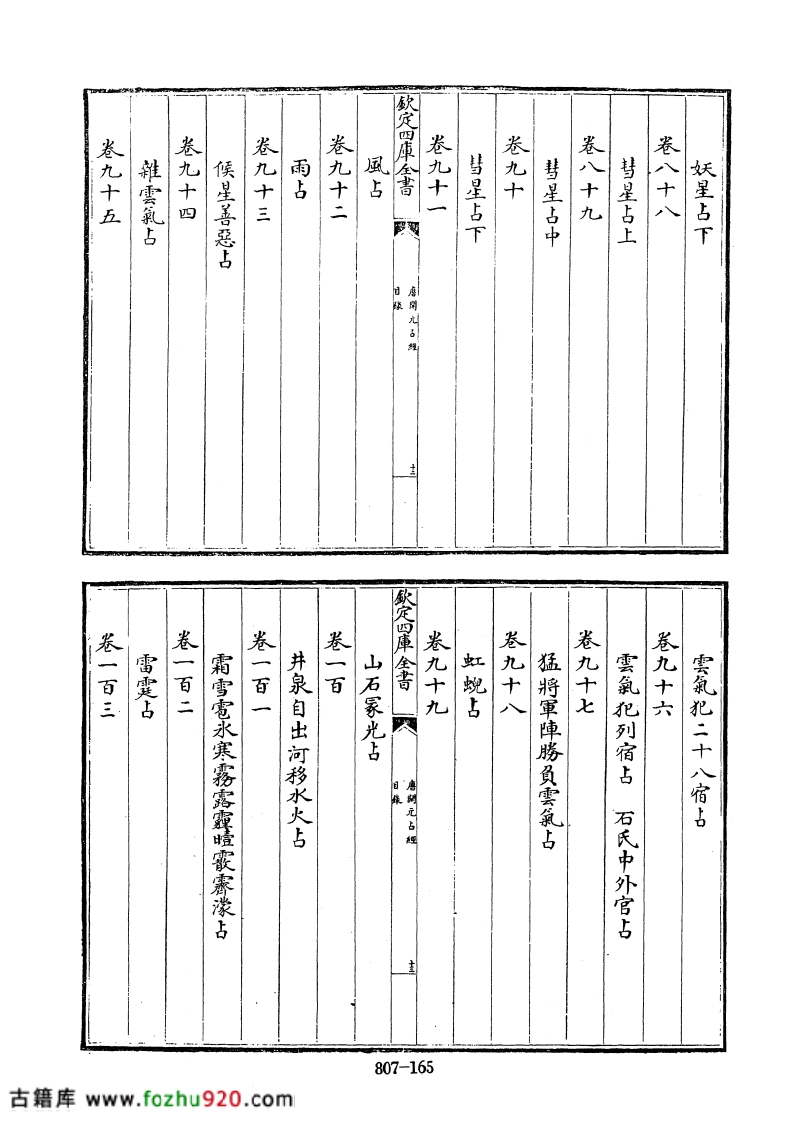 妖星占下
卷八十八
彗星占上
卷八十九
彗星占中
卷九十
彗星占下
卷九十一
欽定四庫全書
唐開元占經
目錄
十二
風占
卷九十二
雨占
卷九十三
候星善惡占
卷九十四
雜雲氣占
卷九十五
雲氣犯二十八宿占
卷九十六
雲氣犯列宿占 石氏中外官占
卷九十七
猛將軍陣勝負雲氣占
卷九十八
虹蜺占
卷九十九
欽定四庫全書
唐開元占經
目錄
十三
山石冢光占
卷一百
井泉自出河移水火占
卷一百一
霜雪雹氷寒霧露霾曀霰霽濛占
卷一百二
雷霆占
卷一百三
807-165
古籍库 www.fozhu920.com